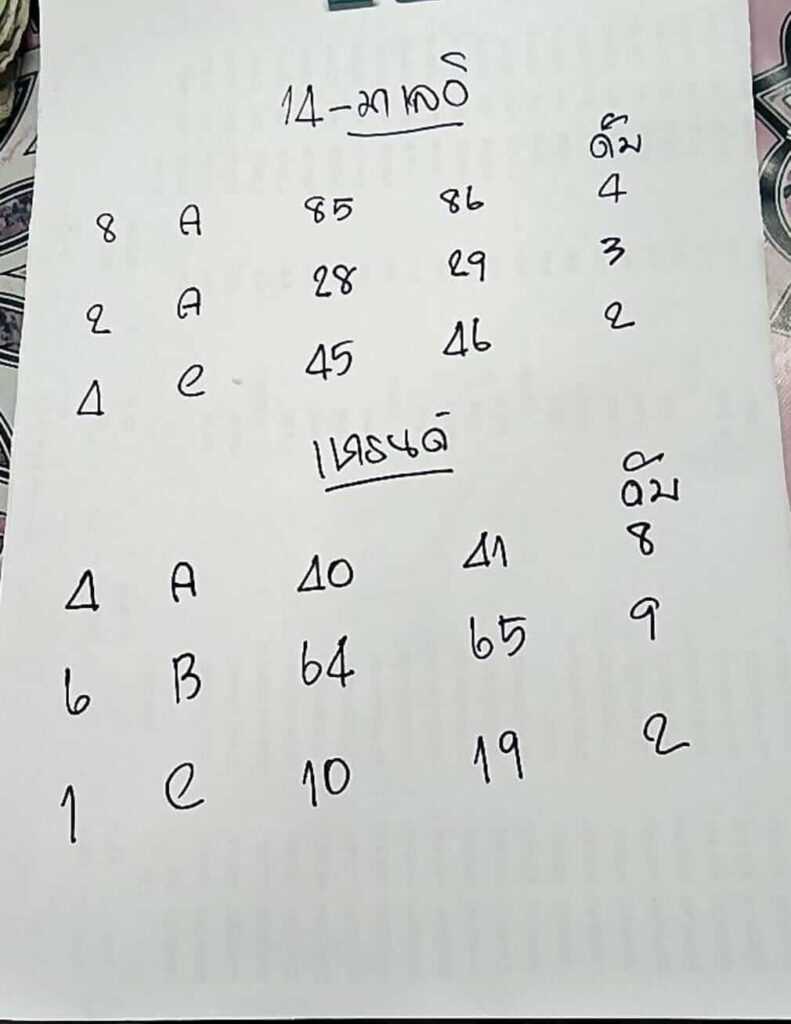 14-มาเลย์
ดับ
8 A 85 86 4
2 A 28 29 3
4 C 45 46 2
เทรนด์
ดับ
4 A 40 41 8
6 B 64 65 9
1 C 10 19 2